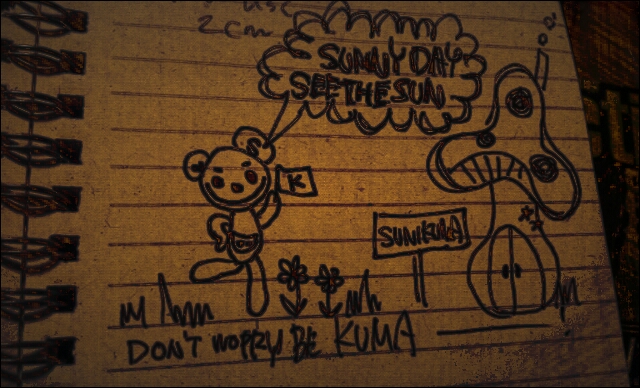 2 cm
SUNNY DAY
SEE THE SUN
S
K
SUNIKUMA
DON'T WORRY BE KUMA